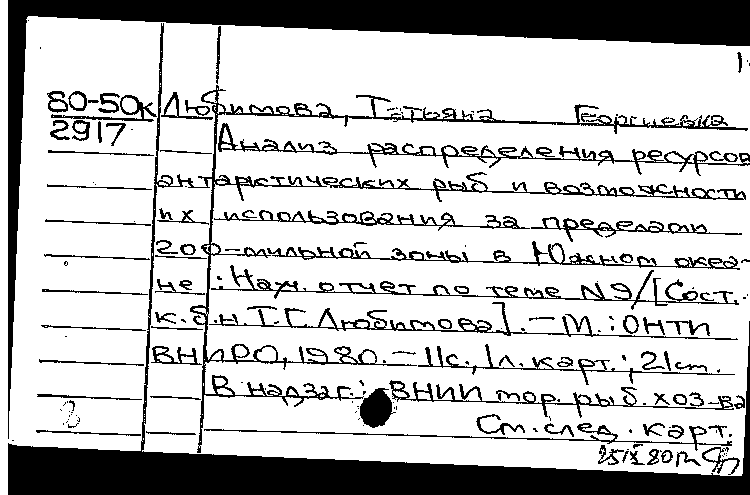 1
80-50к Любимова, Татьяна Георгиевна
2917
Анализ распределения ресурсов
антарктических рыб и возможности
их использования за пределами
200-мильной зоны в Южном океа-
не : Науч. отчет по теме N9/[Сост.
к.б.н. Т.Г. Любимова]. — М. : ОНТИ
ВНИРО, 1980. — 11с., 1л. карт.; 21см.
В надзаг.: ВНИИ мор. рыб. хоз-ва
См. след. карт.
25IX80г